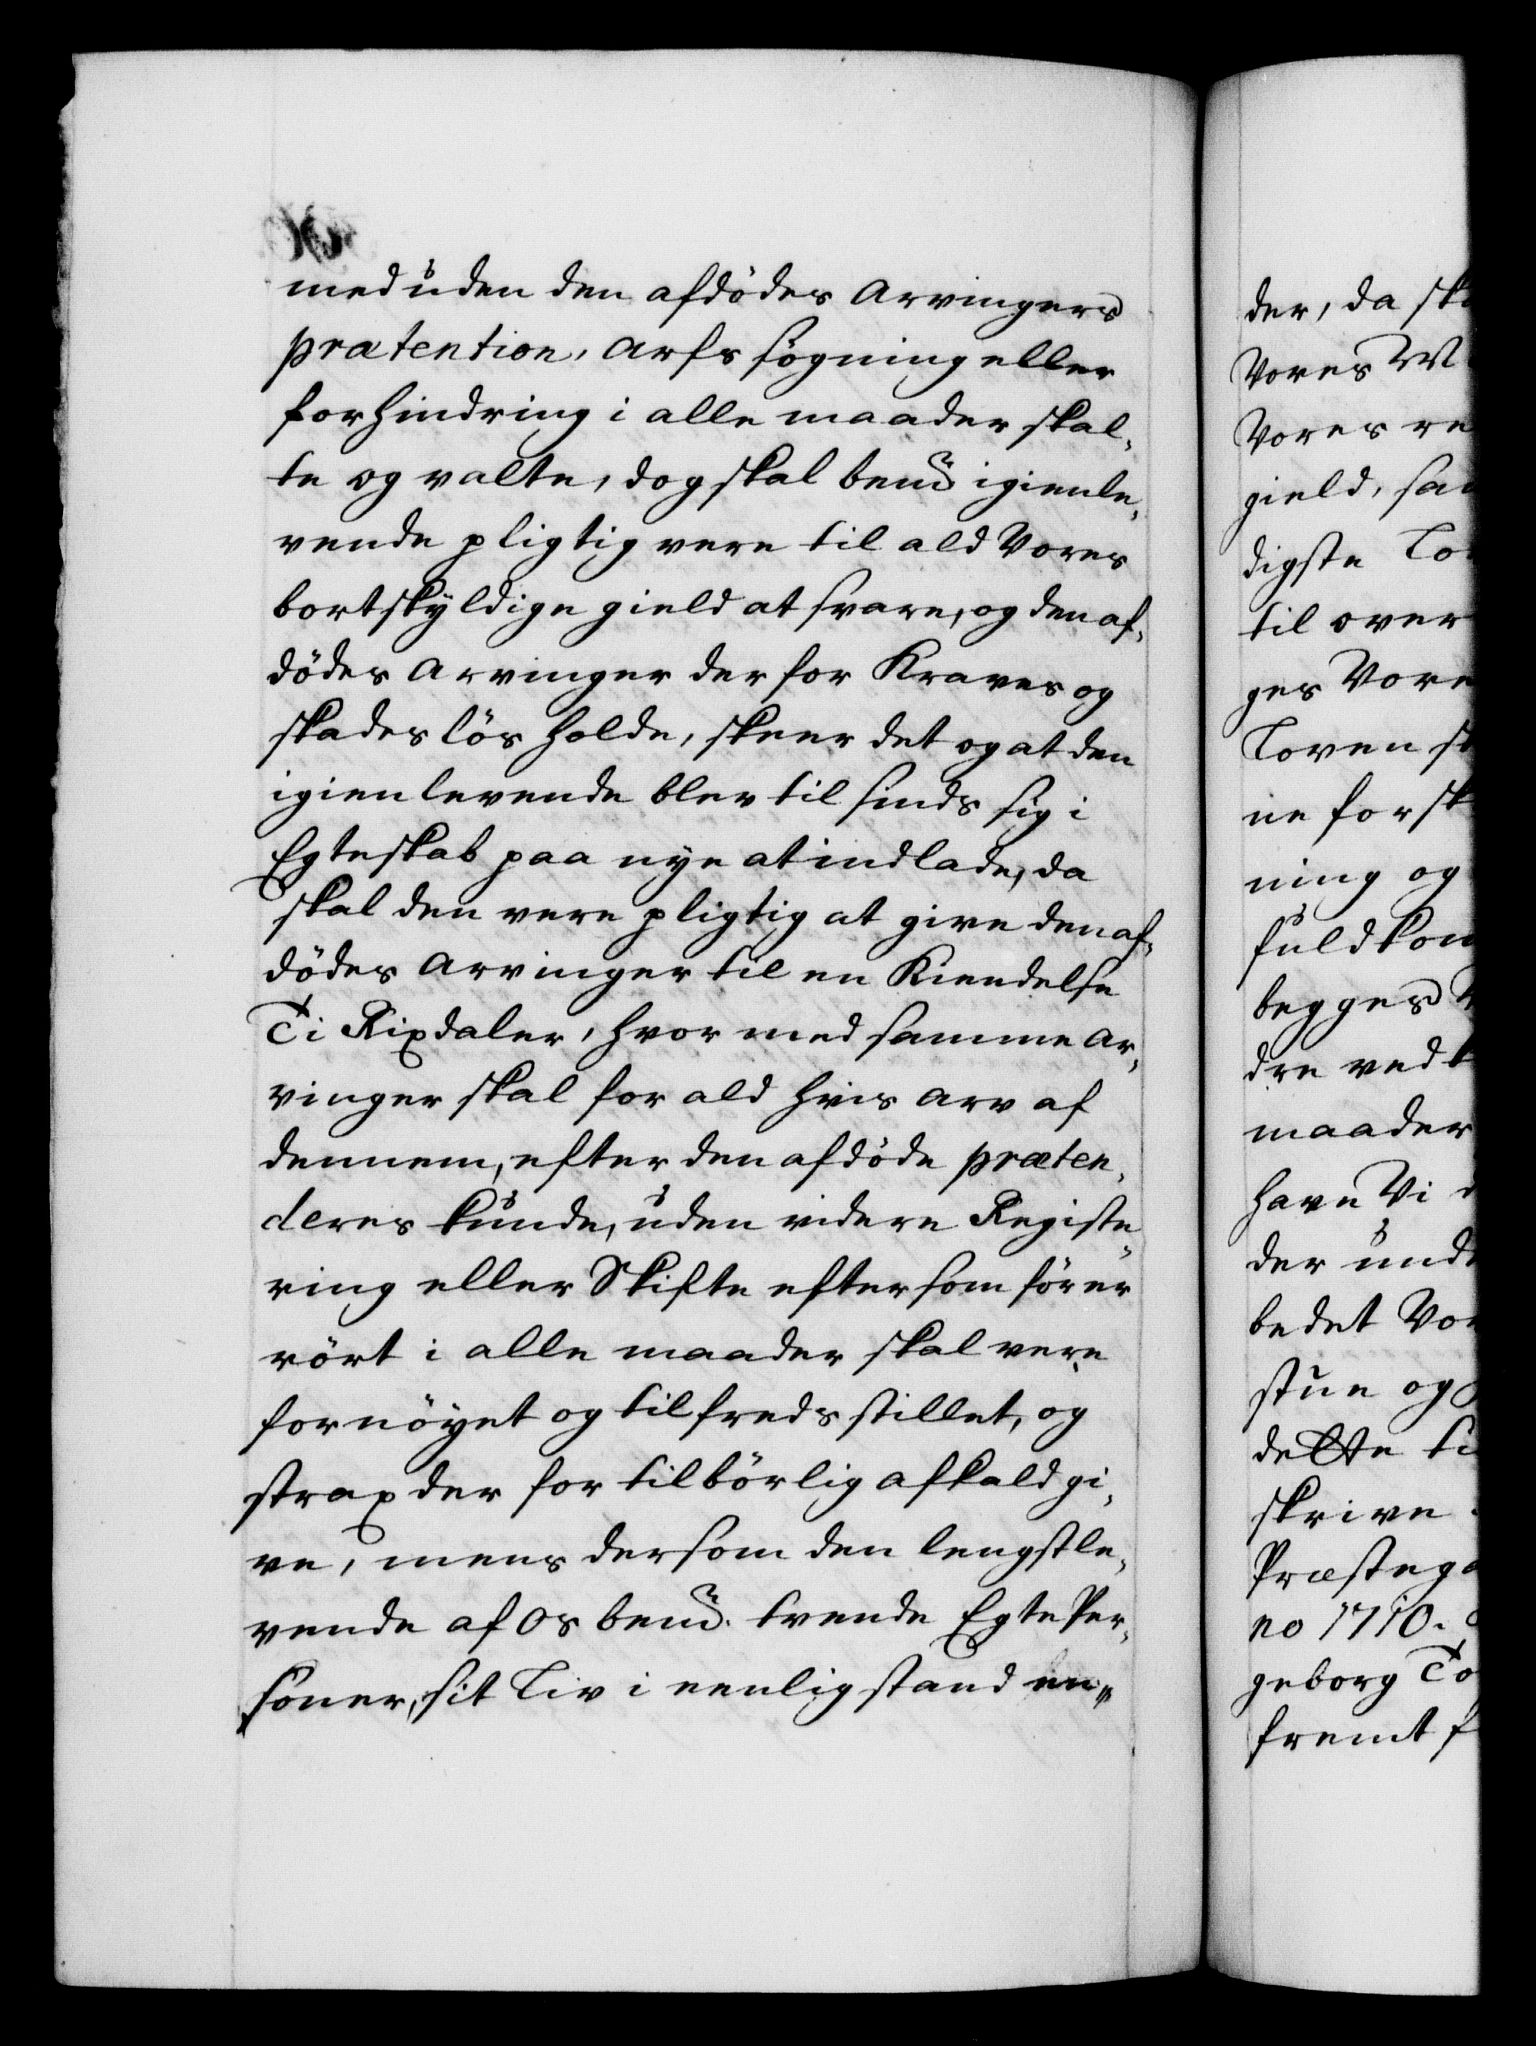 med uden den afdödes Arvingers
prætention, Arfs søgning eller
forhindring i alle maader skal,
te og valte, dog skal bemte igienle,
vende pligtig vere til ald Vores
bortskÿldige gield at svare, og den af,
dödes Arvinger der for Kraves og
skadeslös holde, skeer det og at den
igienlevende blev til sinds sig i
Egteskab paa nye at indlade, da
skal den vere pligtig at give den af,
dödes Arvinger til en Kiendelse
Ti Rixdaler, hvor med samme Ar,
vinger skal for ald hvis Arv af
dennem, efter den afdöde præten,
deres kunde, uden videre Registe,
ring eller Skifte eftersom för er
rört i alle maader skal vere
fornöyet og tilfredsstillet, og
strax der for tilbörlig afkald gi,
ve, mens dersom den lengstle,
vende af os bemte tvende Egte Per,
soner, sit Liv i eenlig stand en„
der, da sk
Vores
Vores re
gield, sa
digste Lo
til over
ges Vore
Loven s
ne forsk
ning og
fuldkom
begges
dre ved
maader
have Vi
der und
bedet Vo
stue og
dette ti
skrive
Præstega
no 1710.
geborg To
fremt f